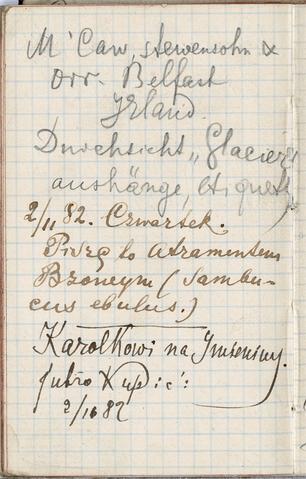 M'Caw, stewensohn &
Orr. Belfast
Irland.
Durchsicht „Glacier"
aushänge, etiquett
2/11 82. Czwartek.
Piszę to atramentem
Bzoneym (Sambu-
cus ebulus.)
Karolkowi na Imieniny.
jutro Kupić:
2/11 82